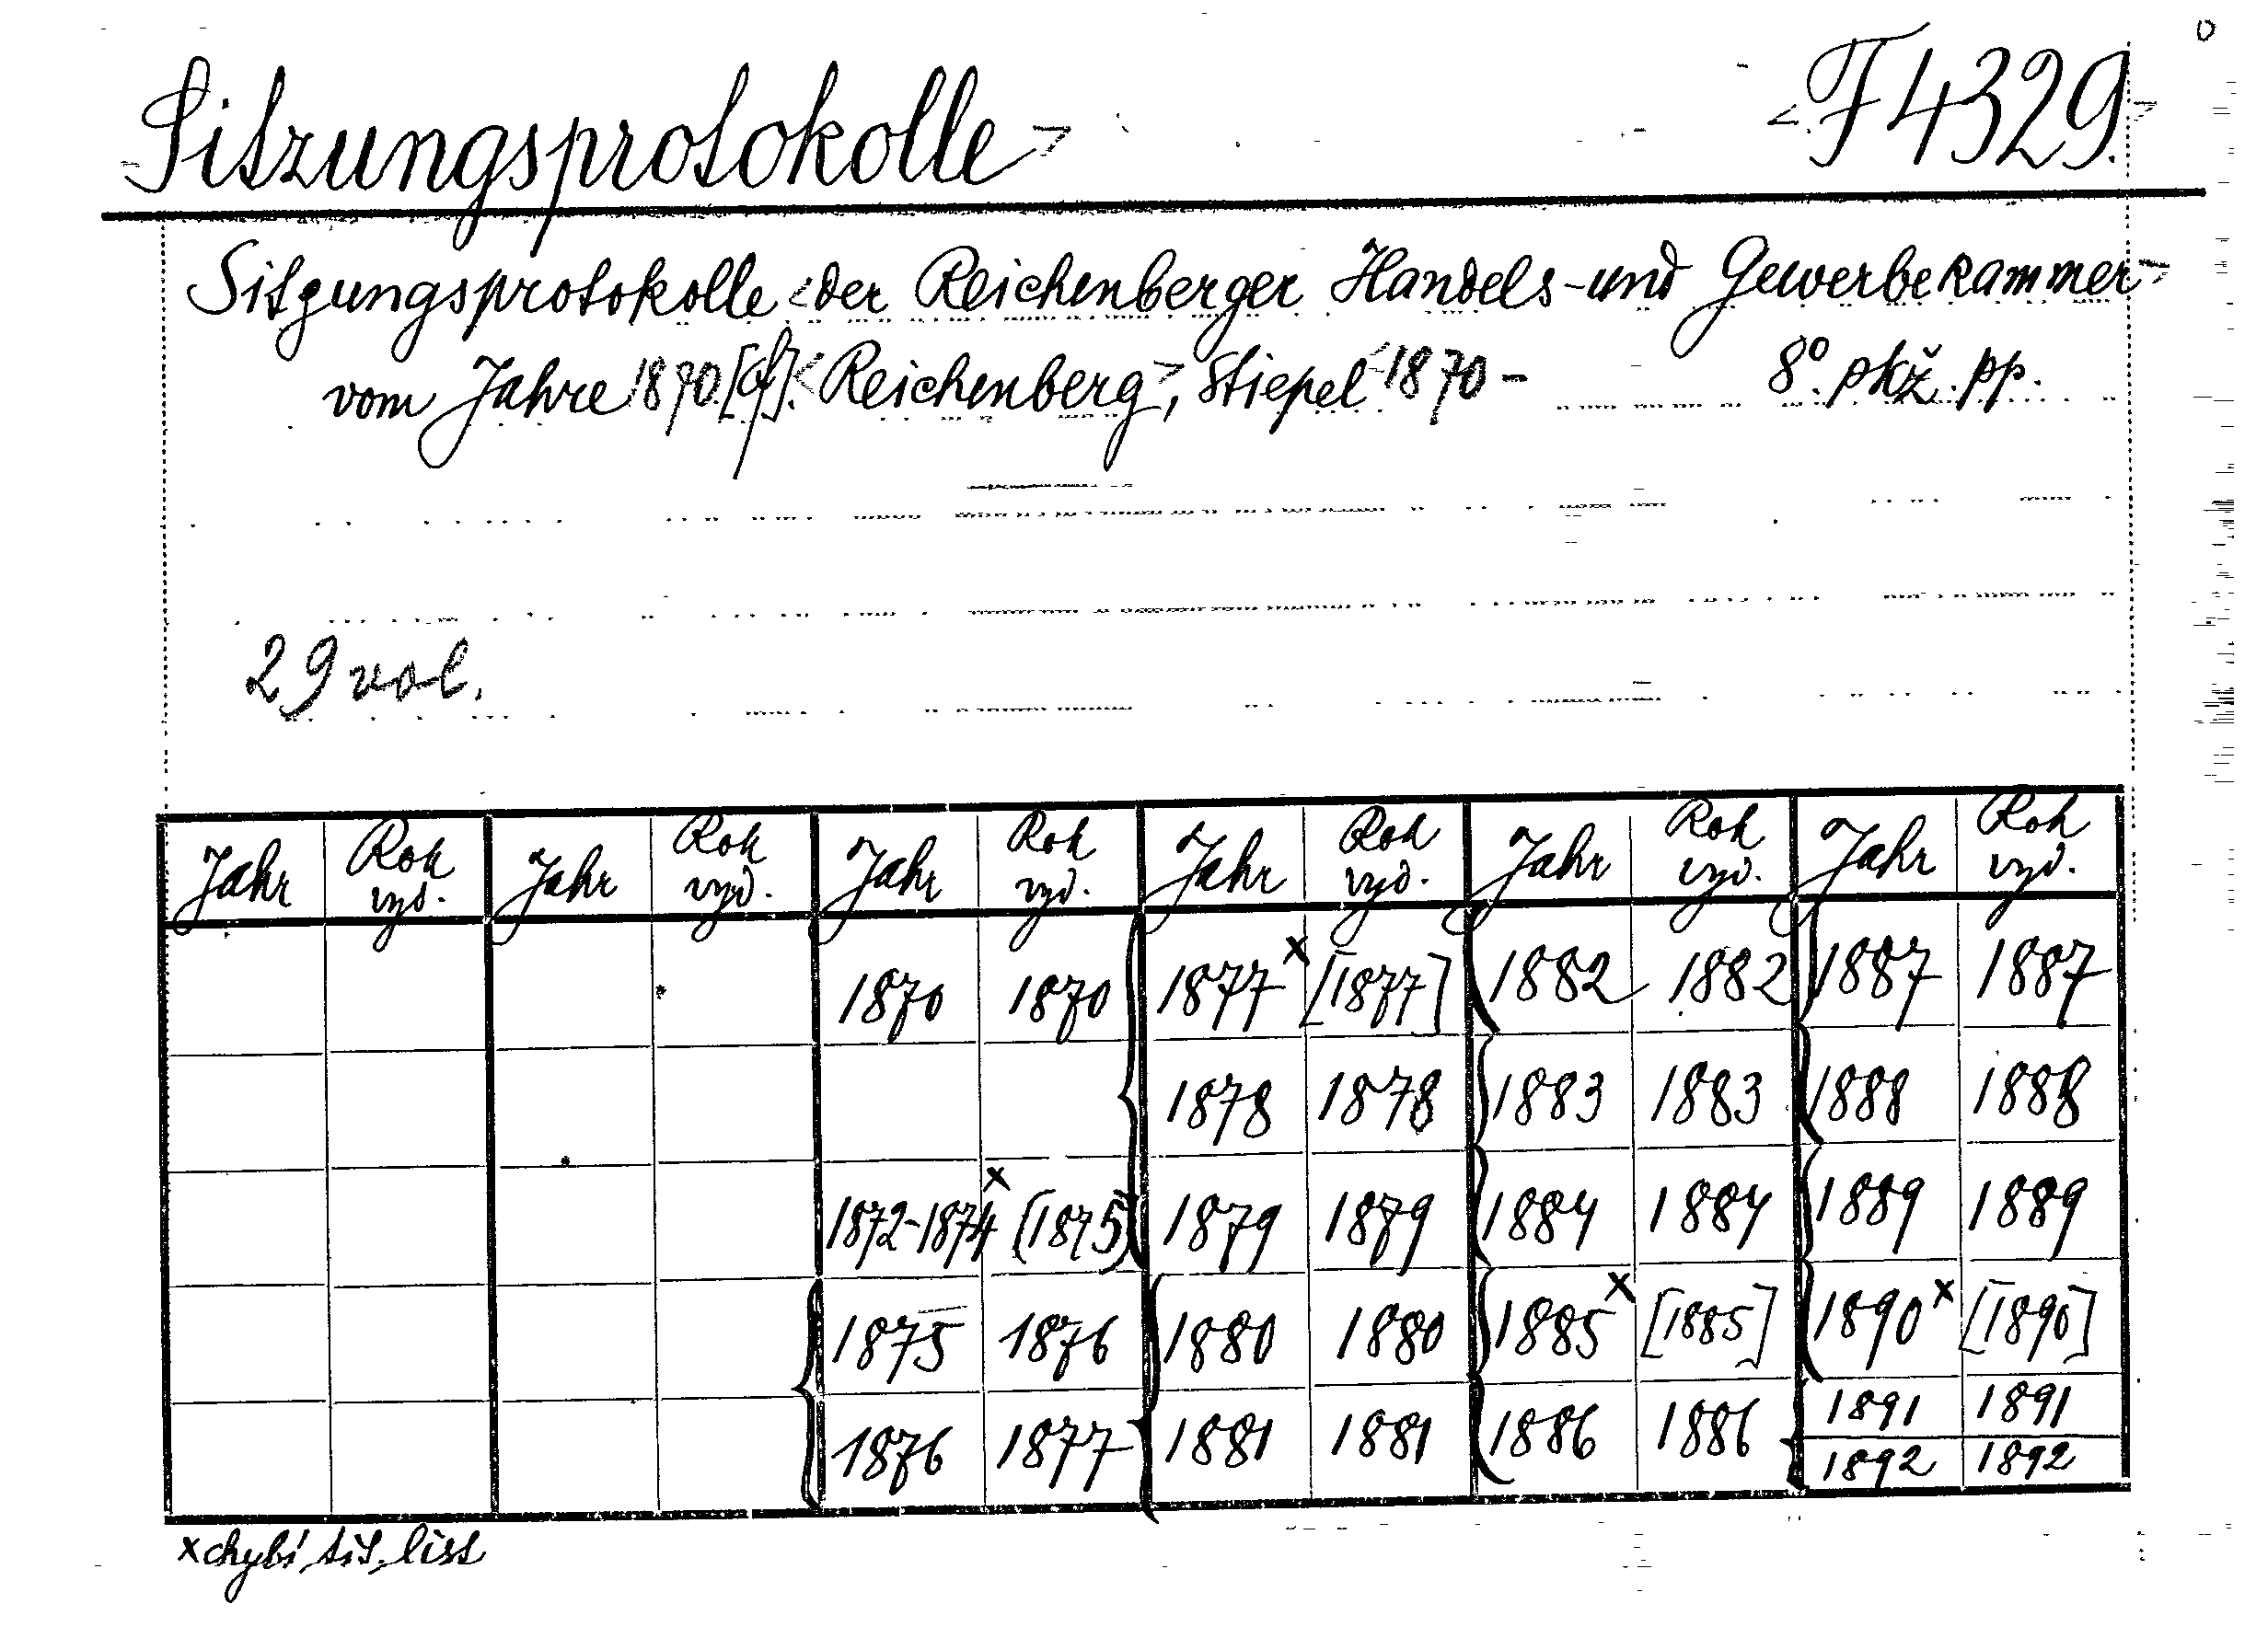 Sitzungsprotokolle
F 4329.
Sitzungsprotokolle der Reichenberger Handels- und Gewerbekammer
vom Jahre 1870. [cf]. Reichenberg, Stiepel 1870 - 8°. pkž. pp.
29 vol.
Jahr Rok vyd. Jahr Rok vyd. Jahr Rok vyd. Jahr Rok vyd. Jahr Rok vyd. Jahr Rok vyd.
1870 1870 1877 x [1877] 1882 1882 1887 1887
1878 1878 1883 1883 1888 1888
1872-1874 x [1875] 1879 1879 1884 1884 1889 1889
1875 1876 1880 1880 1885 x [1885] 1890 x [1890]
1876 1877 1881 1881 1886 1886 1891 1891
1892 1892
x chybí tit. list